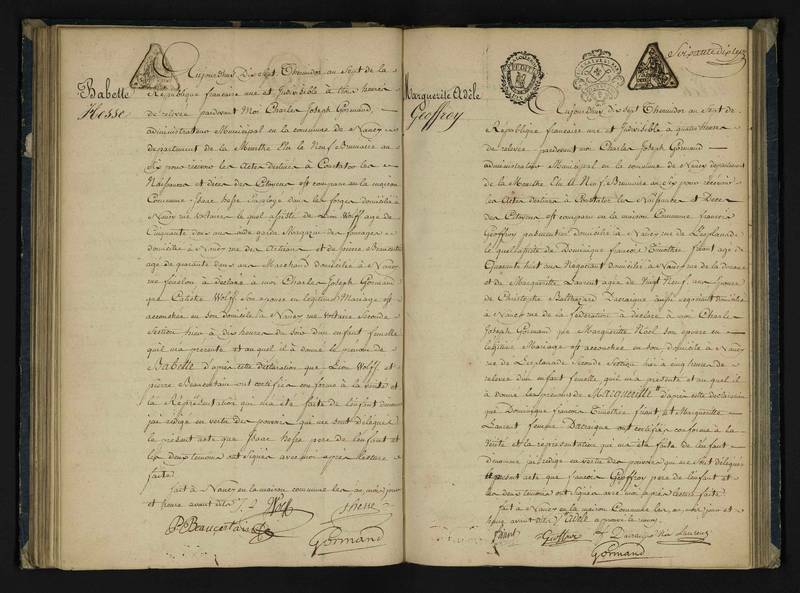 Babette
Hesse
Aujourdhui Dix Sept Thermidor an Sept de la
République française une et Indivisible à trois heures
de relevée pardevant Moi Charles Joseph Gormand
administrateur Municipal en la commune de Nancy
département de la Meurthe Elu le Neuf Brumaire an
Six pour recevoir les Actes destinés à Constater les
Naissances et décès des Citoyens est comparu en la maison
Commune Isaac hesse Employé dans les forges domicilié à
Nancy rue Voltaire le quel assisté de Lion Wolff agé de
Cinquante deux ans garde Magazin des fourages
domicilié à Nancy rue des Artisans et de pierre Beaucertain
agé de quarante deux ans Marchand domicilié à Nancy
rue fénelon à déclaré à moi Charles Joseph Gormand
que Wolff Son épouse en légitime Mariage est
accouchée en son domicile à Nancy rue Voltaire Seconde
Section hier à dix heures du soir d'un enfant femelle
qu'il m'a présenté et au quel il à donné le prénom de
Babette d'après cette déclaration que Lion Wolff et
pierre Beaucertain ont certifiée conforme à la vérité et
la Représentation qui m'a été faite de l'enfant dénommé
j'ai rédigé en vertu des pouvoirs qui me sont délégués
le présent acte que Isaac hesse père de l'enfant et
les deux témoins ont signés avec moi après lecture
faite.
fait à Nancy en la maison commune les an, mois, jour
et heure avant dits
Wolff hesse
P Beaucertain
Gormand
Marguerite Adèle
Geoffroy
Soixante dix sept
Aujourdhuy dix Sept Thermidor an Sept de
République française une et Indivisible à quatre heures
de relevée pardevant moi Charles Joseph Gormand
administrateur Municipal en la commune de Nancy département
de la Meurthe Elu le Neuf Brumaire an Six pour recevoir
les Actes destinés à Constater les Naissances et Décès
des Citoyens est comparu en la maison Commune françois
Geoffroy domicilié à Nancy rue de l'esplanade
le quel assisté de Dominique françois Timothée agé de
Quarante huit ans Négociant domicilié à Nancy rue de la Douane
et de Marguerite Laurent agée de Vingt Neuf ans épouse
de Christophe Balthazard aussi négociant domiciliée
à Nancy rue de la fédération à déclaré à moi Charles
Joseph Gormand que Marguerite Noël son épouse en
légitime Mariage est accouchée en son domicile à Nancy
rue de l'esplanade Seconde Section hier à cinq heures de
relevée d'un Enfant femelle qu'il m'a présenté et au quel il
à donné les prénoms de Marguerite d'après cette déclaration
que Dominique françois Timothée et Marguerite
Laurent femme ont certifiée conforme à la
Vérité et la représentation qui m'a été faite de l'enfant
dénommé j'ai rédigé en vertu des pouvoirs qui me sont délégués
le présent acte que françois Geoffroy père de l'enfant et
les deux témoins ont signés avec moi après lecture faite
fait à Nancy en la maison Commune les an, mois, jour et
heure avant dits Adèle approuvé
Geoffroy née Laurent
Gormand